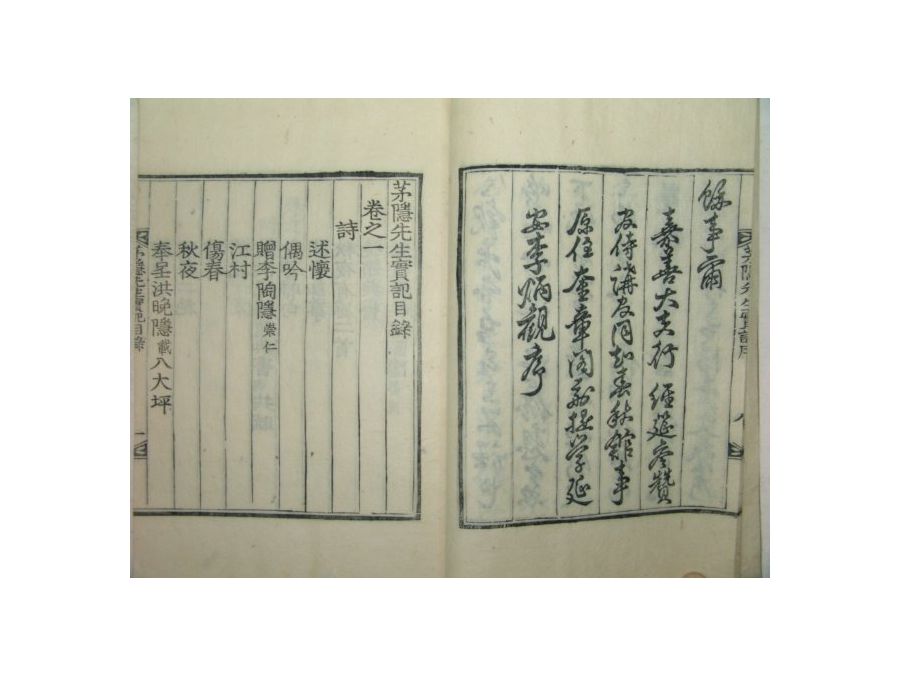 餘事爾
嘉善大夫行 經筵參贊
官侍講官同知春秋館事
原任奎章閣副提學延
安李炳觀序
茅隱先生實記目錄
卷之一
詩
述懷
偶吟
贈李陶隱崇仁
江村
傷春
秋夜
奉呈洪晩隱載八大坪
茅隱先生實記目錄 一